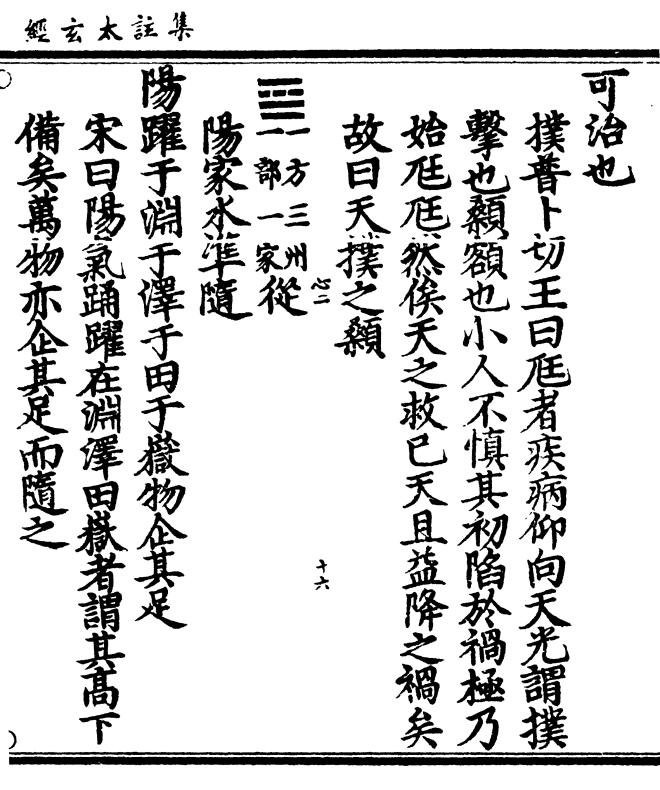 集註太玄經
可治也
撲普卜切王曰尫者疾病仰向天光謂撲
擊也顙額也小人不慎其初陷於禍極乃
始尫尫然俟天之救已天且益降之禍矣
故曰天撲之顙
心二
十六
一方三州
一部一家
從
陽家水準隨
陽躍于淵于澤于田于嶽物企其足
宋曰陽氣踊躍在淵澤田嶽者謂其高下
備矣萬物亦企其足而隨之